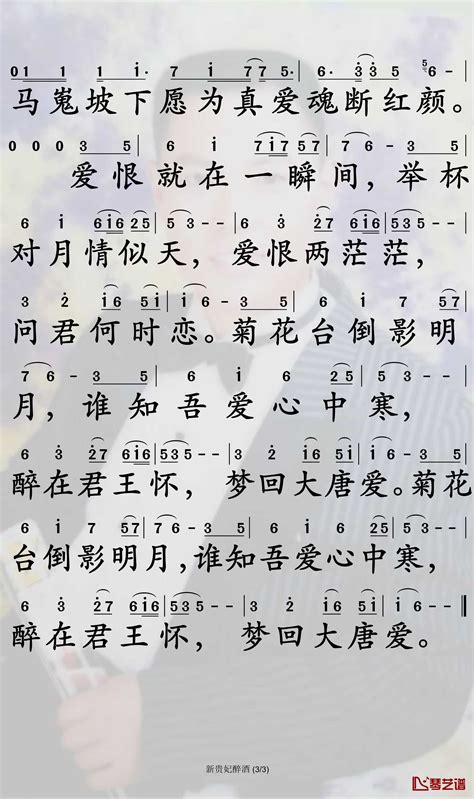 01 1 1 i· 7 i 775· 6· 335 56-
马嵬坡下愿为真爱魂断红颜。
0 0 0 3 5 6 i 7 i 7 6 - 3 5
爱恨就在一瞬间，举杯
6 i i6 625 5 3 - - 6 i i6 625 5 3 - -
对月情似天，爱恨两茫茫，
3 2 i6 5i 6 - 3 5 6 i 7 57
问君何时恋。菊花台倒影明
7 6 - 3 5 6 i 6 25 5 3 - -
月，谁知吾爱心中寒，
6 3 27 6i6 535 - - 6 3 2 i5 6 - 3 5
醉在君王怀，梦回大唐爱。菊花
6 i 7 57 7 6 - 3 5 6 i 6 25 5 3 - -
台倒影明月，谁知吾爱心中寒，
6 3 27 6i6 535 - - 6 3 2 i5 6 - -
醉在君王怀，梦回大唐爱。
新贵妃醉酒 (3/3)
琴艺谱